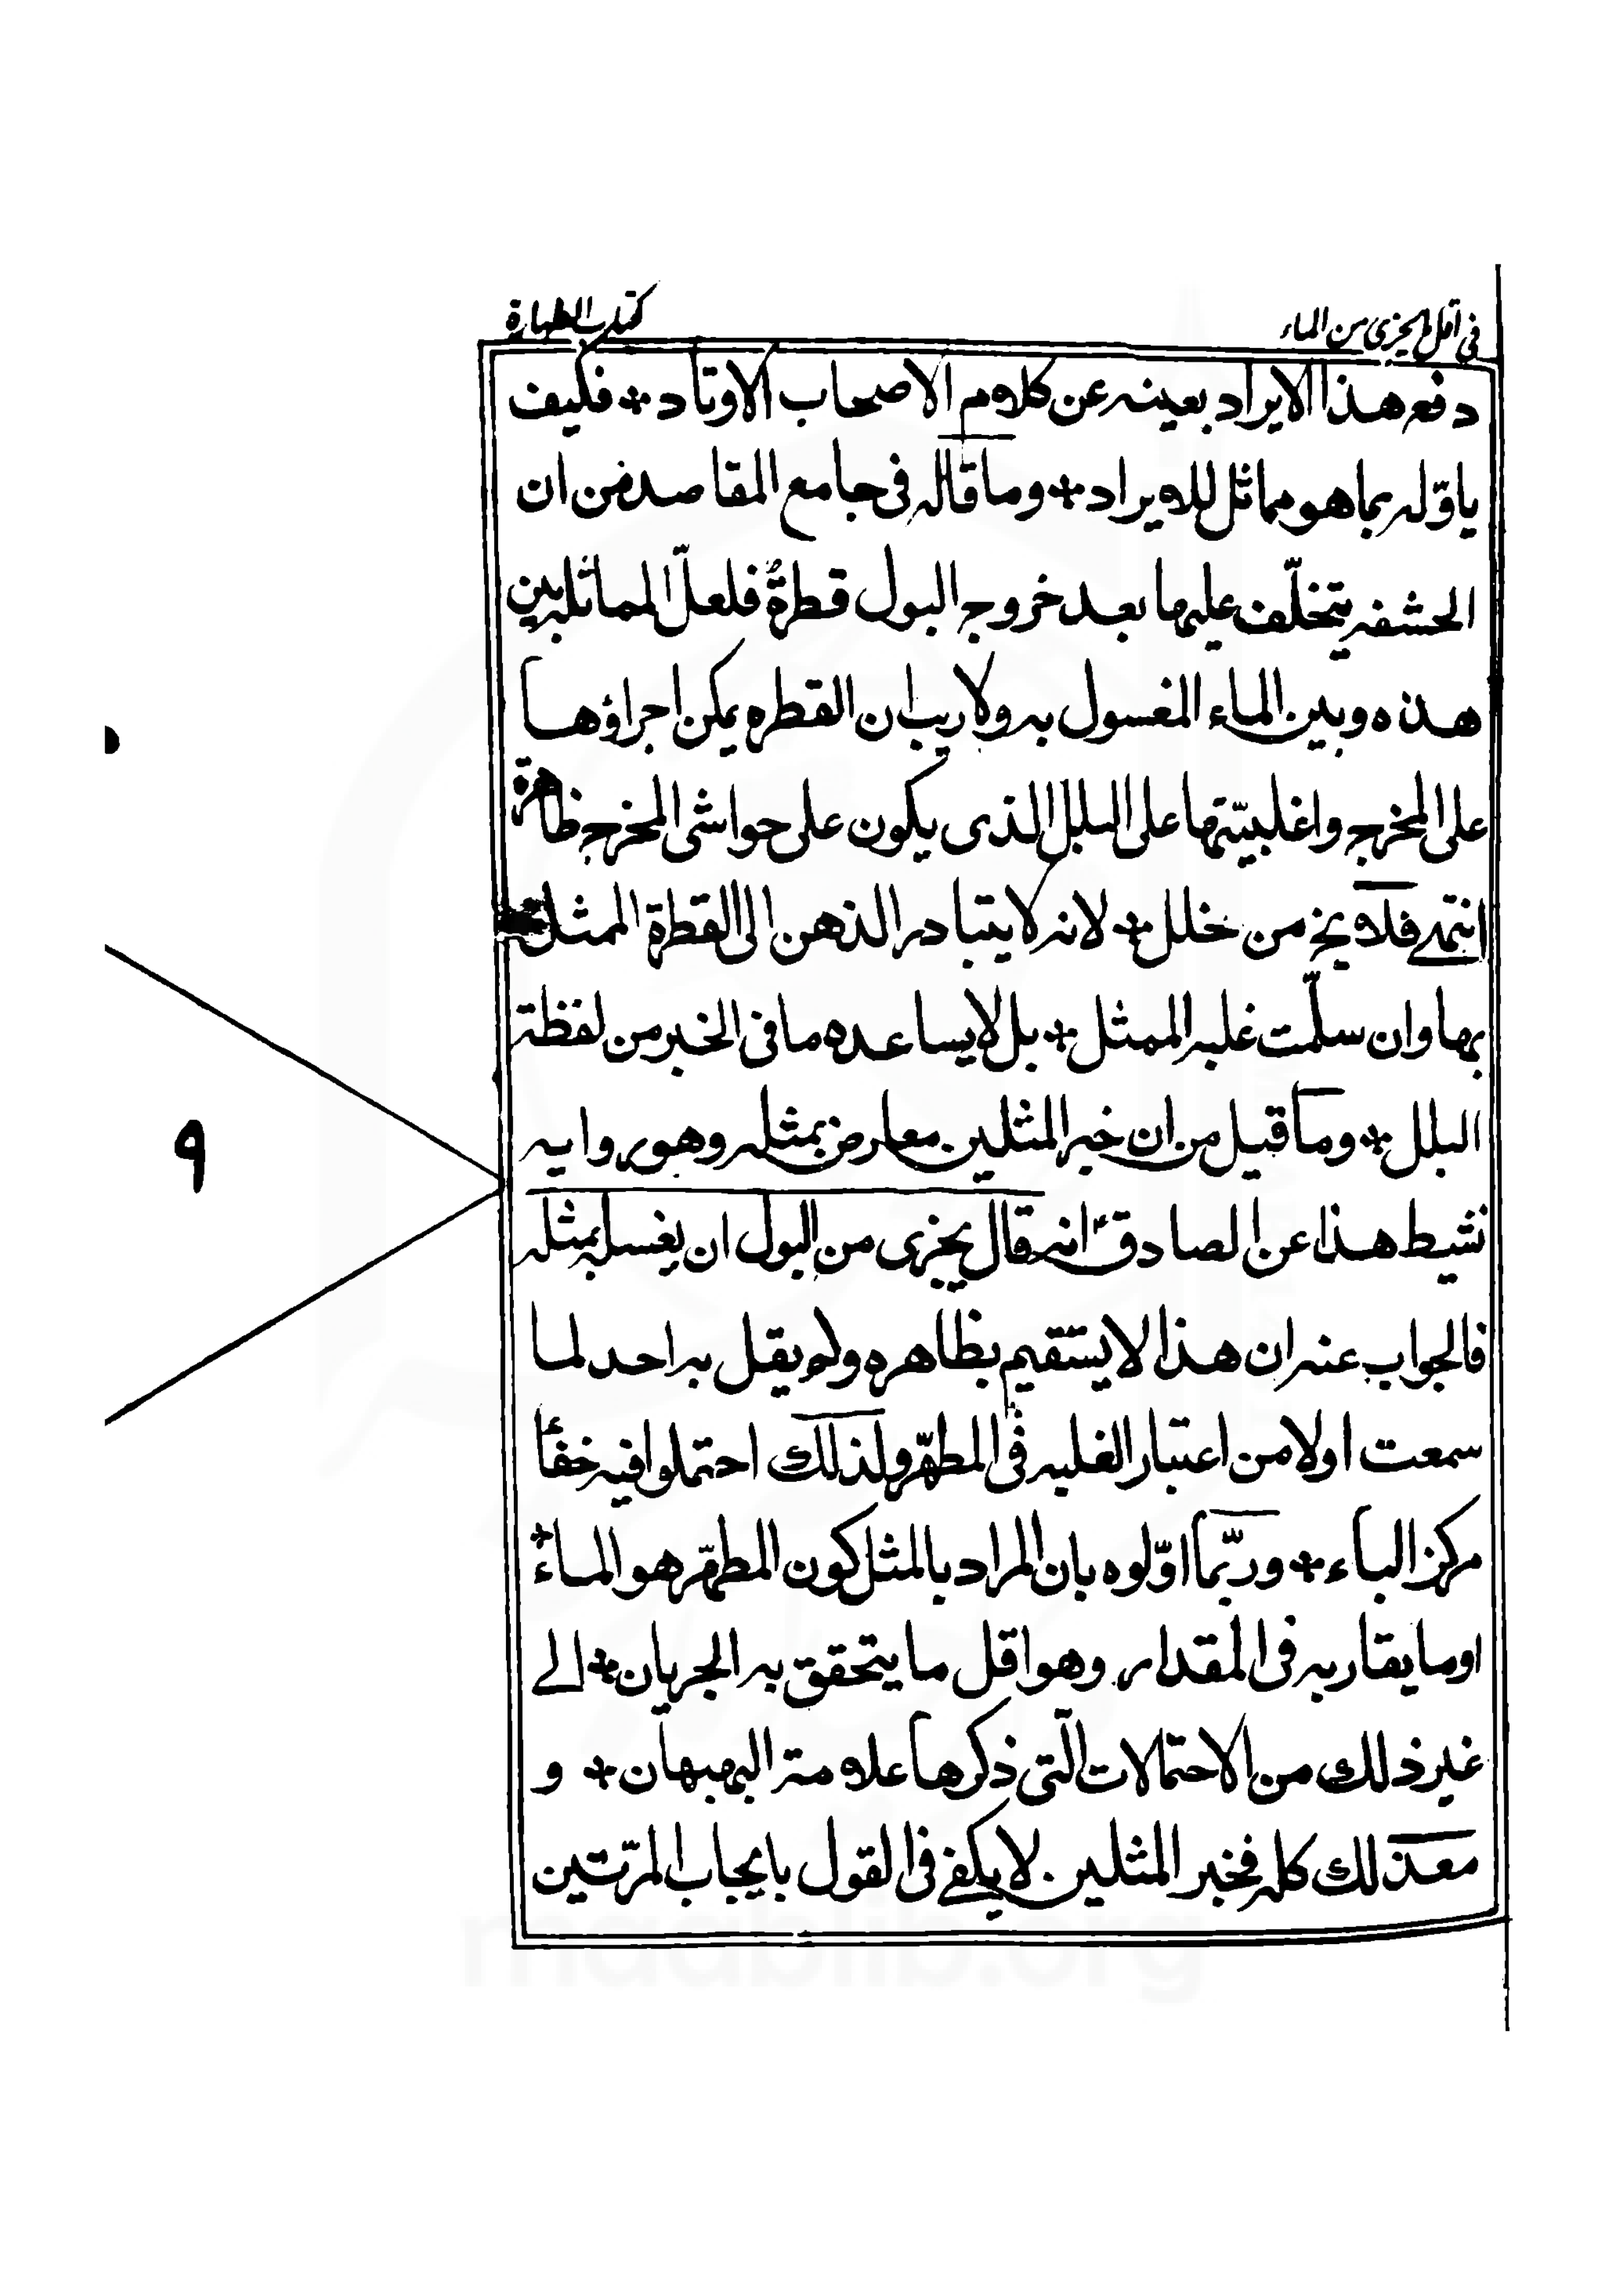 في اقل ما يجزى من الماء
كتاب الطهارة
دفع هذا الايراد بعينه عن كلام الاصحاب الاوتاد * فكيف
ياوّله بما هو مماثل للايراد * وما قاله فى جامع المقاصد من ان
الحشفه يتخلّف عليها بعد خروج البول قطرةٌ فلعلّ المماثله بين
هذه وبين الماء المغسول به ولا ريب ان القطره يمكن اجراؤها
على المخرج واغلبيّتها على البلل الذى يكون على حواشى المخرج ظاهرة
انتهى فلا يخ من خلل * لانه لا يتبادر الذهن الى القطرة الممثل
بها وان سلّمت غلبه الممثل * بل لا يساعده ما فى الخبر من لفظة
البلل * وما قيل من ان خبر المثلين معارض بمثله وهو روايه
نشيط هذا عن الصادقؑ انه قال يجزى من البول ان يغسله بمثله
فالجواب عنه ان هذا لا يستقيم بظاهره ولم يقل به احد لما
سمعت اولا من اعتبار الغلبه فى المطهّر ولذلك احتملوا فيه خفاءً
مركز الباء * وربّما اوّلوه بان المراد بالمثل كون المطهّر هو الماء *
او ما يقاربه فى المقدار وهو اقل ما يتحقق به الجريان * الے
غير ذلك من الاحتمالات الّتى ذكرها علامة البهبهان * و
معذلك كله فخبر المثلين لا يكفے فى القول بايجاب المرّتين
٩
maablib.org